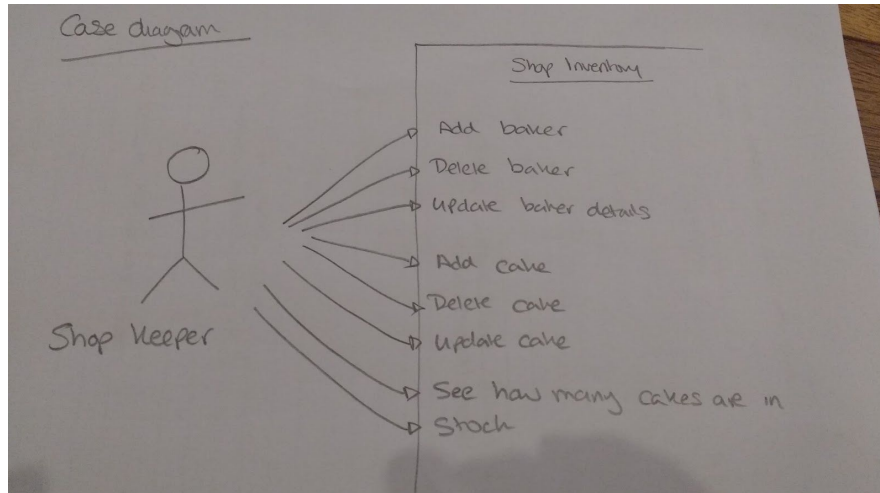 Case diagam
Shop Inventory
Add baker
Delete baker
update baker details
Add cake
Delete cake
update cake
See how many cakes are in
Stock
Shop Keeper